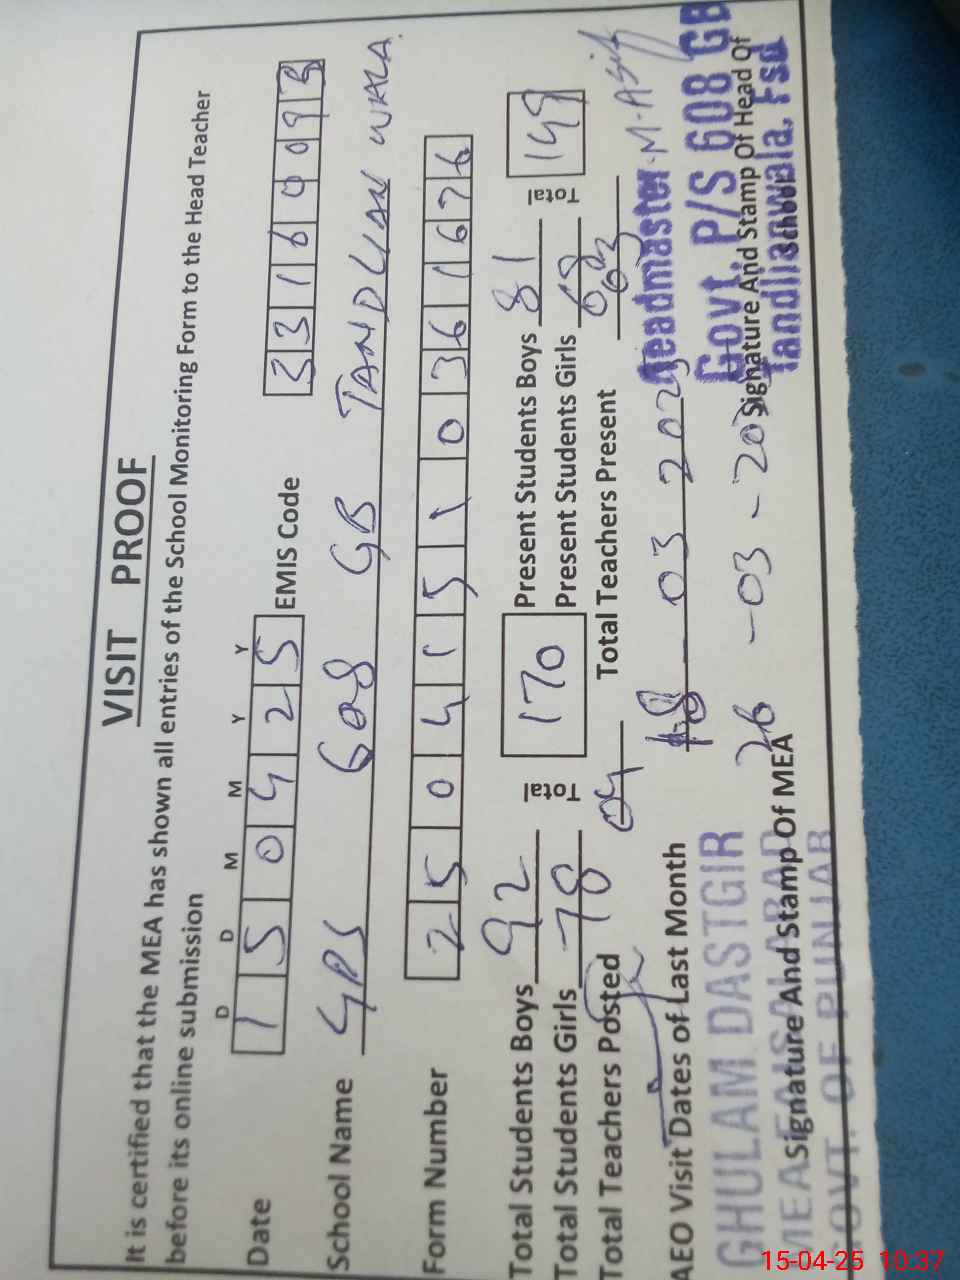 VISIT PROOF
It is certified that the MEA has shown all entries of the School Monitoring Form to the Head Teacher
before its online submission
D D M M Y Y
Date 1 5 0 4 2 5 EMIS Code 3 3 1 6 0 0 9 3
School Name GPS 608 GB TANDLIAN WALA.
Form Number 2 5 0 4 1 5 1 1 0 3 6 1 6 7 6
Total Students Boys 92 Total 170 Present Students Boys 81 Total 149
Total Students Girls 78 Present Students Girls 68
Total Teachers Posted 04 Total Teachers Present 03
AEO Visit Dates of Last Month 18 03 2025
26 -03 -202
Headmaster M-Asif
Govt. P/S 608 GB
Tandlianwala, Fsd
GHULAM DASTGIR
MEA FAISALABAD
GOVT. OF PUNJAB
Signature And Stamp Of MEA
Signature And Stamp Of Head Of
School
15-04-25 10:37